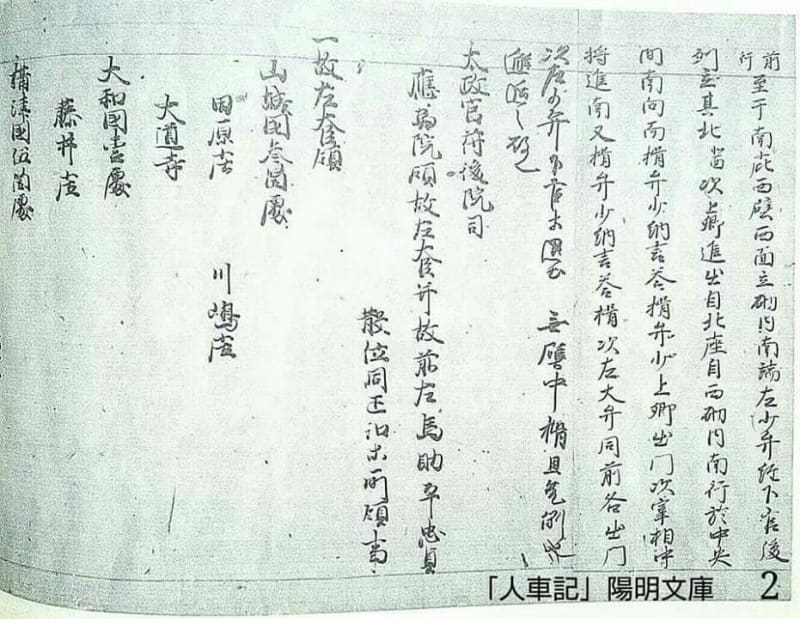 前行至于南庇西壁西面立砌内南端左少弁経下官後
列立其北当次上卿進出自北座自西砌内南行於中央
間南向而揖弁少納言答揖弁少上卿出門次宰相中
将進南又揖弁少納言答揖次左大弁同前各出門
次左少弁下官
太政官符後院司
應為院領故左大臣并故前左馬助平忠貞
散位同正
一故左大臣領
山城国参箇處
田原庄 川嶋庄
大道寺
大和國壹處
藤井庄
攝津國伍箇處
「人車記」陽明文庫 2